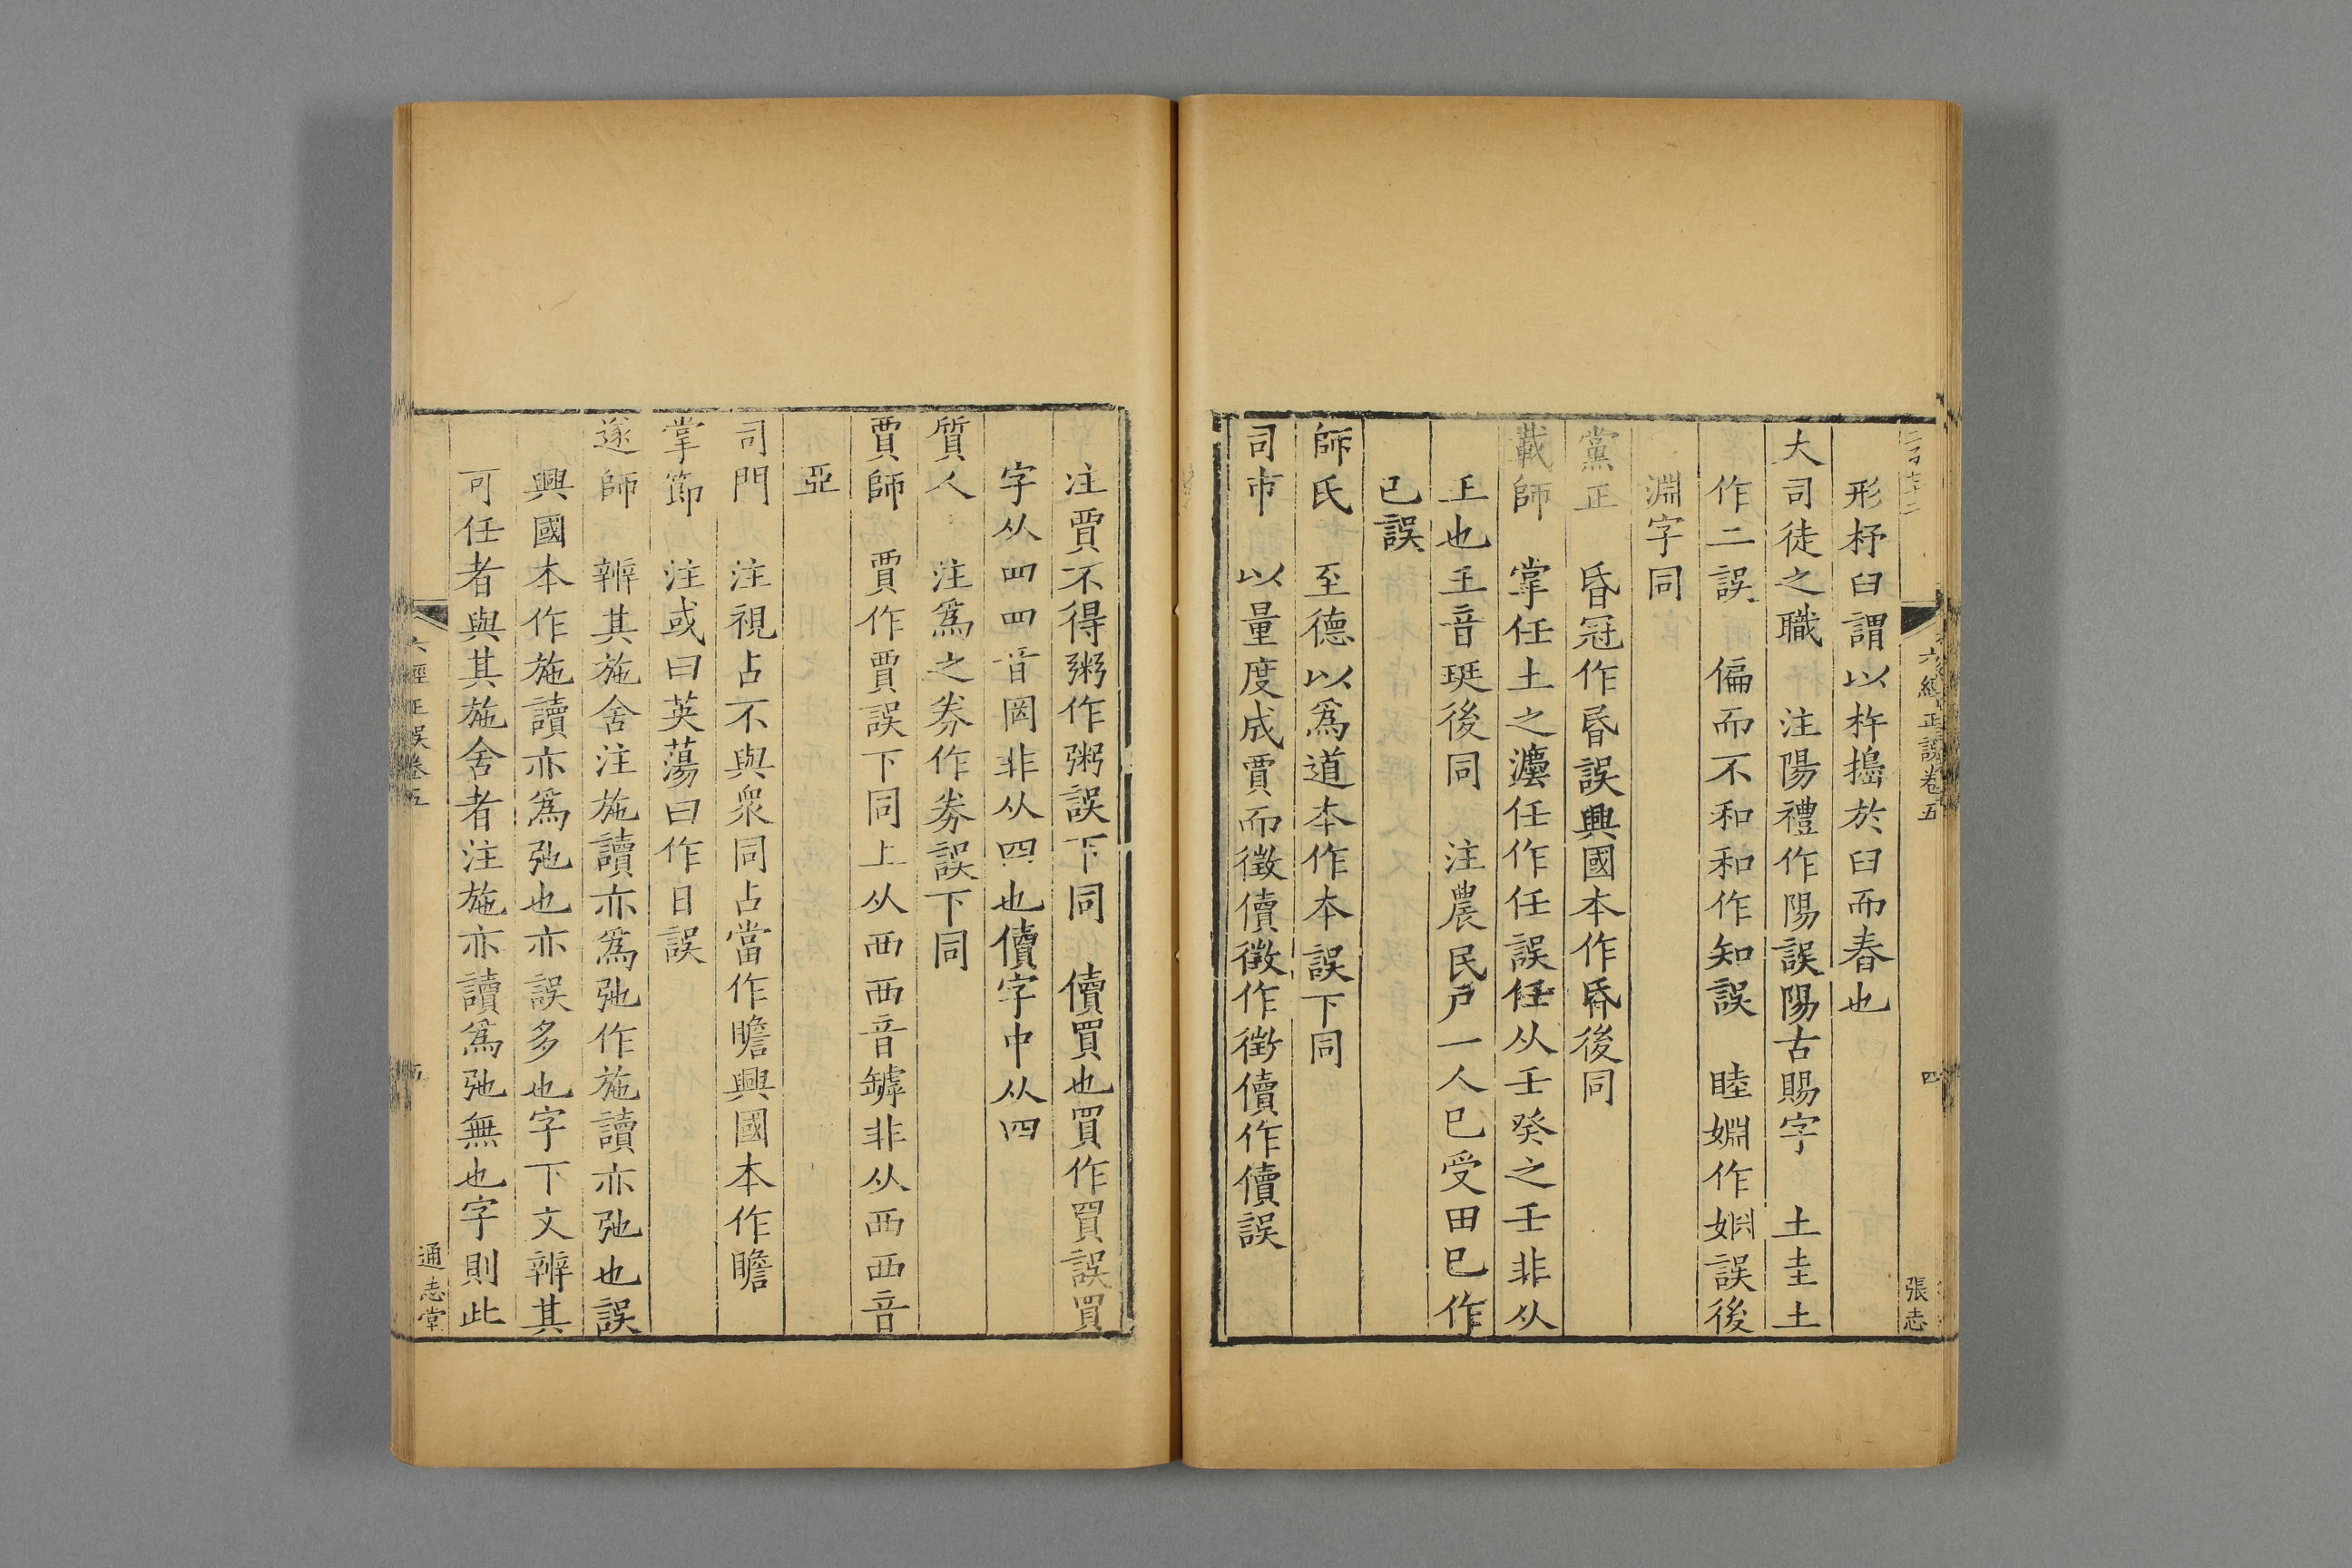 六經正誤卷五
四
張志
形杼臼謂以杵擣於臼而舂也
大司徒之職　注陽禮作陽誤陽古賜字　土圭土
作二誤　偏而不和和作知誤　睦婣作婣誤後
淵字同
黨正　昏冠作昬誤興國本作昏後同
載師　掌任土之灋任作任誤任从壬癸之壬非从
𡈼也𡈼音珽後同　注農民戶一人已受田已作
巳誤
師氏　至德以爲道本作本誤下同
司市　以量度成賈而徵儥徵作徵儥作儥誤
注賈不得粥作粥誤下同　儥買也買作買誤買
字从罒罒音罔非从四也儥字中从四
質人　注爲之券作劵誤下同
賈師　賈作賈誤下同上从襾襾音罅非从西西音
亞
司門　注視占不與衆同占當作瞻興國本作瞻
掌節　注或曰英蕩曰作日誤
遂師　辨其施舍注施讀亦爲弛作施讀亦弛也誤
興國本作施讀亦爲弛也亦誤多也字下文辨其
可任者與其施舍者注施亦讀爲弛無也字則此
六經正誤卷五
通志堂